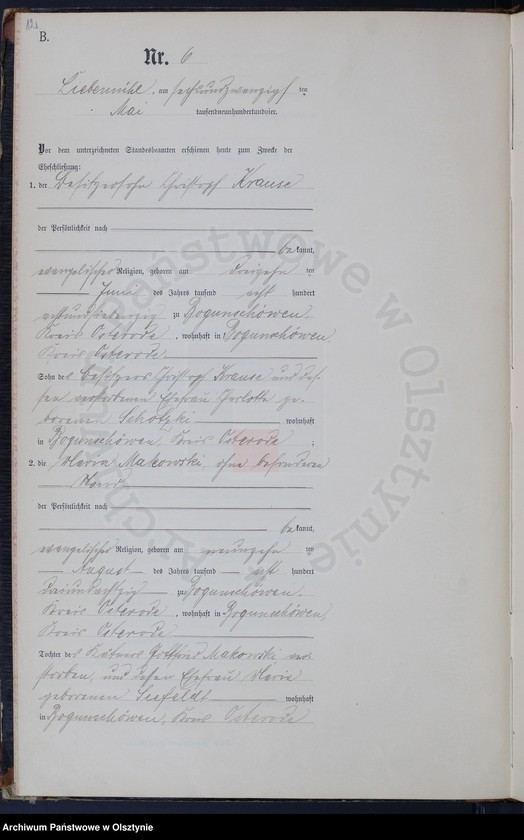 B.
Nr. 6
Liebemühl, am sechsundzwanzigsten
Mai tausendneunhundertundvier.
Vor dem unterzeichneten Standesbeamten erschienen heute zum Zwecke der
Eheschließung:
1. der Besitzersohn Christoph Krause
der Persönlichkeit nach
bekannt,
evangelischer Religion, geboren am dreizehnten
Juni des Jahres tausend acht hundert
achtundsiebenzig zu Bogunschöwen,
Kreis Osterode, wohnhaft in Bogunschöwen,
Kreis Osterode
Sohn des Besitzers Christoph Krause und des-
sen verstorbenen Ehefrau Charlotte ge-
borenen wohnhaft
in Bogunschöwen, Kreis Osterode;
2. die Maria Makowski, ohne besonderen
Stand
der Persönlichkeit nach
bekannt,
evangelischer Religion, geboren am neunzehnten
August des Jahres tausend acht hundert
dreiundachtzig zu Bogunschöwen,
Kreis Osterode, wohnhaft in Bogunschöwen,
Kreis Osterode
Tochter des Käthners Gottfried Makowski, ver-
storben, und dessen Ehefrau Marie
geborenen Seefeldt wohnhaft
in Bogunschöwen, Kreis Osterode
Archiwum Państwowe w Olsztynie